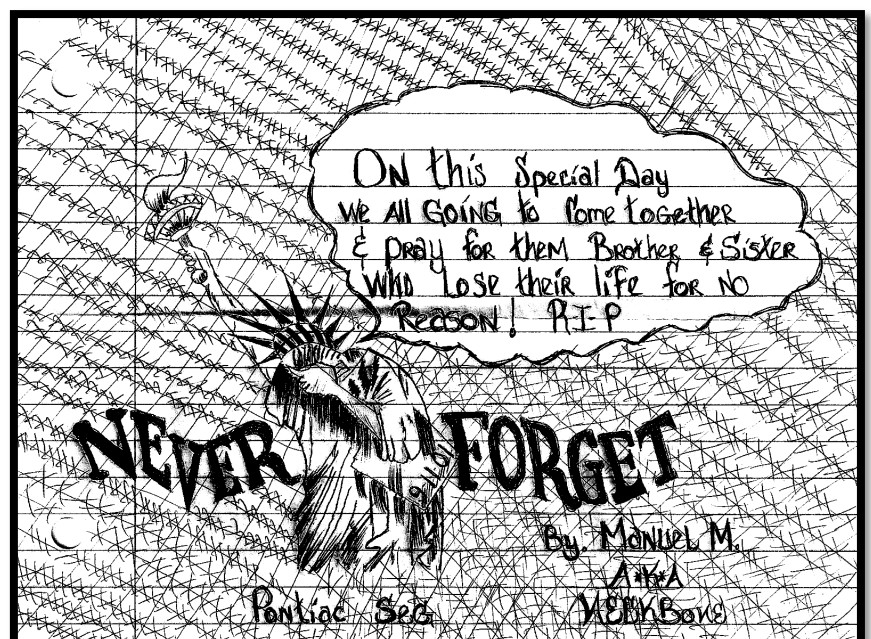 ON this Special Day
We All GOiNG to Come toGether
& pray for theM Brother & Sister
WHO Lose their life for NO
ReasoN! R.I.P
NEVER FORGET
By. MaNUeL M.
A*K*A
Pontiac SeG NEEKBONE